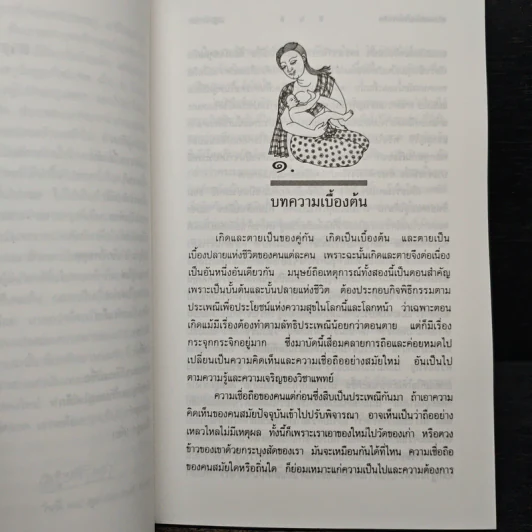 ๑.
บทความเบื้องต้น
เกิดและตายเป็นของคู่กัน เกิดเป็นเบื้องต้น และตายเป็น
เบื้องปลายแห่งชีวิตของคนแต่ละคน เพราะฉะนั้นเกิดและตายจึงต่อเนื่อง
เป็นอันหนึ่งอันเดียวกัน มนุษย์ถือเหตุการณ์ทั้งสองนี้เป็นตอนสำคัญ
เพราะเป็นขั้นต้นและขั้นปลายแห่งชีวิต ต้องประกอบกิจพิธีกรรมตาม
ประเพณีเพื่อประโยชน์แห่งความสุขในโลกนี้และโลกหน้า ว่าเฉพาะตอน
เกิดแม้มีเรื่องต้องทำตามลัทธิประเพณีน้อยกว่าตอนตาย แต่ก็มีเรื่อง
กระจุกกระจิกอยู่มาก ซึ่งมาบัดนี้เสื่อมคลายการถือและค่อยหมดไป
เปลี่ยนเป็นความคิดเห็นและความเชื่อถืออย่างสมัยใหม่ อันเป็นไป
ตามความรู้และความเจริญของวิชาแพทย์
ความเชื่อถือของคนแต่ก่อนซึ่งสืบเป็นประเพณีกันมา ถ้าเอาความ
คิดเห็นของคนสมัยปัจจุบันเข้าไปปรับพิจารณา อาจเห็นเป็นว่าถืออย่าง
เหลวไหลไม่มีเหตุผล ทั้งนี้ก็เพราะเราเอาของใหม่ไปวัดของเก่า หรือตวง
ข้าวของเขาด้วยกระบุงสัดของเรา มันจะเหมือนกันได้ที่ไหน ความเชื่อถือ
ของคนสมัยใดหรือถิ่นใด ก็ย่อมเหมาะแก่ความเป็นไปและความต้องการ